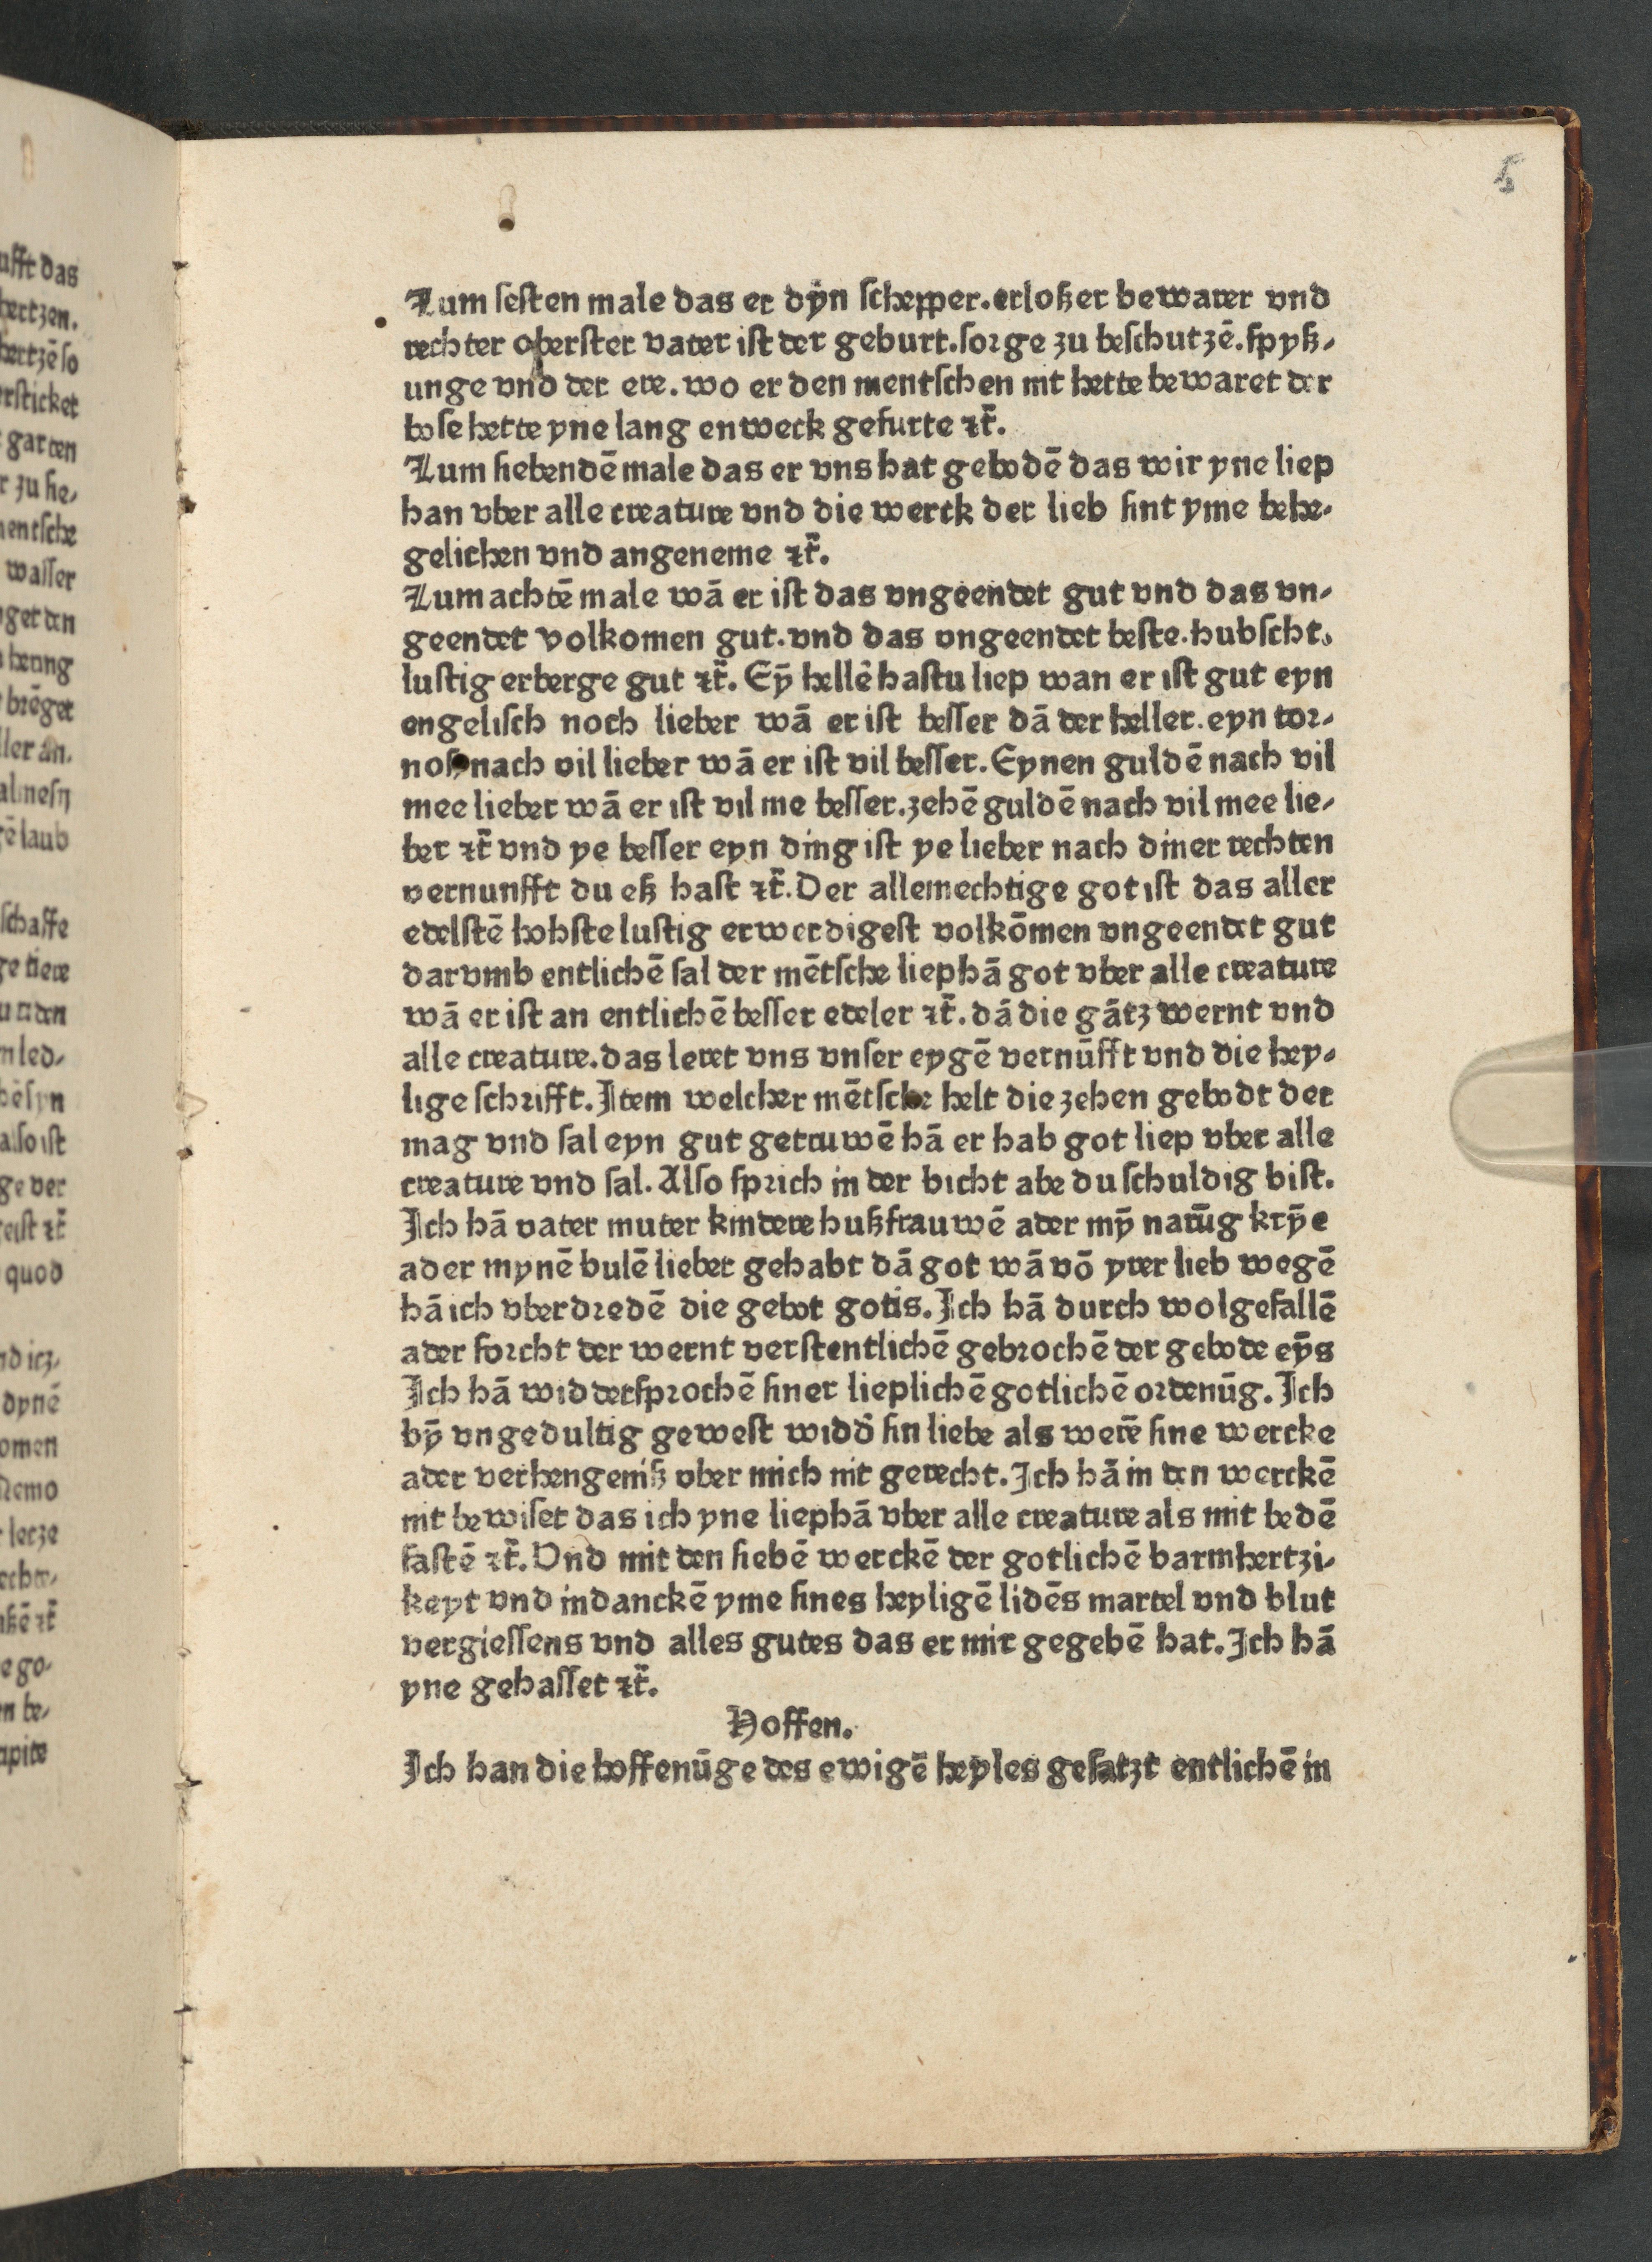 5
Zum ſeſten male das er dyn ſchepper. erloßer bewarer vnd
rechter oberſter vater iſt der geburt. ſorge zu beſchutzē. ſpyß⸗
unge vnd der ere. wo er den mentſchen nit hette bewaret der
boſe hette yne lang enweck gefurte ⁊c̄.
Zum ſiebendē male das er vns hat gebodē das wir yne liep
han vber alle creature vnd die werck der lieb ſint yme behe⸗
gelichen vnd angeneme ⁊c̄.
Zum achtē male wā er iſt das vngeendet gut vnd das vn⸗
geendet volkomen gut. vnd das vngeendet beſte. hubſcht.
luſtig erberge gut ⁊c̄. Eȳ hellē haſtu liep wan er iſt gut eyn
engeliſch noch lieber wā er iſt beſſer dā der heller. eyn tor⸗
noß nach vil lieber wā er iſt vil beſſer. Eynen guldē nach vil
mee lieber wā er iſt vil me beſſer. zehē guldē nach vil mee lie⸗
ber ⁊c̄ vnd ye beſſer eyn ding iſt ye lieber nach diner rechten
vernunfft du eß haſt ⁊c̄. Der allemechtige got iſt das aller
edelſtē hohſte luſtig erwerdigeſt volkōmen vngeendet gut
darvmb entlichē ſal der mētſche liephā got vber alle creature
wā er iſt an entlichē beſſer edeler ⁊c̄. dā die gātz wernt vnd
alle creature. das leret vns vnſer eygē vernūfft vnd die hey⸗
lige ſchrifft. Item welcher mētſche helt die zehen gebodt der
mag vnd ſal eyn gut getruwē hā er hab got liep vber alle
creature vnd ſal. Alſo ſprich in der bicht abe du ſchuldig biſt.
Ich hā vater muter kindere hußfrauwē ader mȳ narūg krȳe
ader mynē bulē lieber gehabt dā got wā vō yrer lieb wegē
hā ich vberdredē die gebot gotis. Ich hā durch wolgefallē
ader forcht der wernt verſtentlichē gebrochē der gebode eȳs
Ich hā widderſprochē ſiner lieplichē gotlichē ordenūg. Ich
bȳ vngedultig geweſt widd̕ ſin liebe als werē ſine wercke
ader verhengeniß vber mich nit gerecht. Ich hā in den werckē
nit bewiſet das ich yne liephā vber alle creature als mit bedē
faſtē ⁊c̄. Vnd mit den ſiebē werckē der gotlichē barmhertzi⸗
keyt vnd in danckē yme ſines heyligē lidēs martel vnd blut
vergieſſens vnd alles gutes das er mir gegebē hat. Ich hā
yne gehaſſet ⁊c̄.
Hoffen.
Ich han die hoffenūge des ewigē heyles geſatzt entlichē in